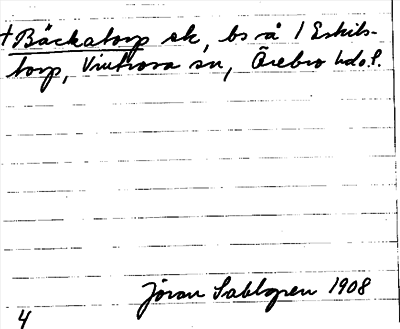 † Bäckatorp sk, bs å 1 Eskils-
torp, Vintrosa sn, Örebro hd o.l.
Jöran Sahlgren 1908
4